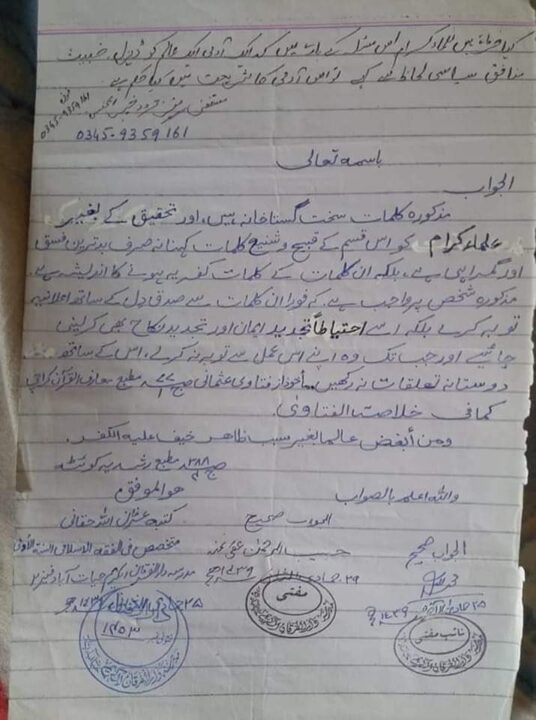 کیا فرماتے ہیں علماء کرام اس مسئلہ کے بارے میں کہ ایک آدمی ایک عالم کو ذلیل، خبیث
منافق سیاسی لحاظ سے کہے تو اس آدمی کا شریعت میں کیا حکم ہے
مستفتی
0345-9359161
0345-9359161
باسمہ تعالٰی
الجواب
مذکورہ کلمات سخت گستاخانہ ہیں، اور تحقیق کے بغیر
علماء کرام کو اس قسم کے قبیح و شنیع کلمات کہنا نہ صرف بدترین فسق
اور گمراہی ہے، بلکہ ان کلمات کے کلمات کفریہ ہونے کا اندیشہ ہے۔
مذکورہ شخص پر واجب ہے، کہ فوراً ان کلمات سے صدق دل کے ساتھ اعلانیہ
توبہ کرلے بلکہ اسے احتیاطاً تجدید ایمان اور تجدید نکاح بھی کرلینی
چاہئیے اور جب تک وہ اپنے اس عمل سے توبہ نہ کرلے، اس کے ساتھ
دوستانہ تعلقات نہ رکھیں۔ ماخوذ از فتاوی عثمانی مطبع معارف القرآن کراچی
کما فی خلاصۃ الفتاویٰ۔
ومن أبغض عالما بغیر سبب ظاہر خیف علیہ الکفر۔
ج ۴ ص ۳۸۸ مطبع رشدیہ کوئٹہ
واللہ اعلم بالصواب
ھو الموفق
الجواب صحیح
کتبہ اللہ حقانی
الجواب صحیح
حبیب الرحمن عفی عنہ
متخصص فی الفقہ الاسلامی السنۃ الأولی
مدرسہ دارالفرقان حیات آباد فیز ۲
۲۹
۱۴۳۹
۲۵
۱۴۳۹
۲۵
مفتی
نائب مفتی
۱۴۵۳